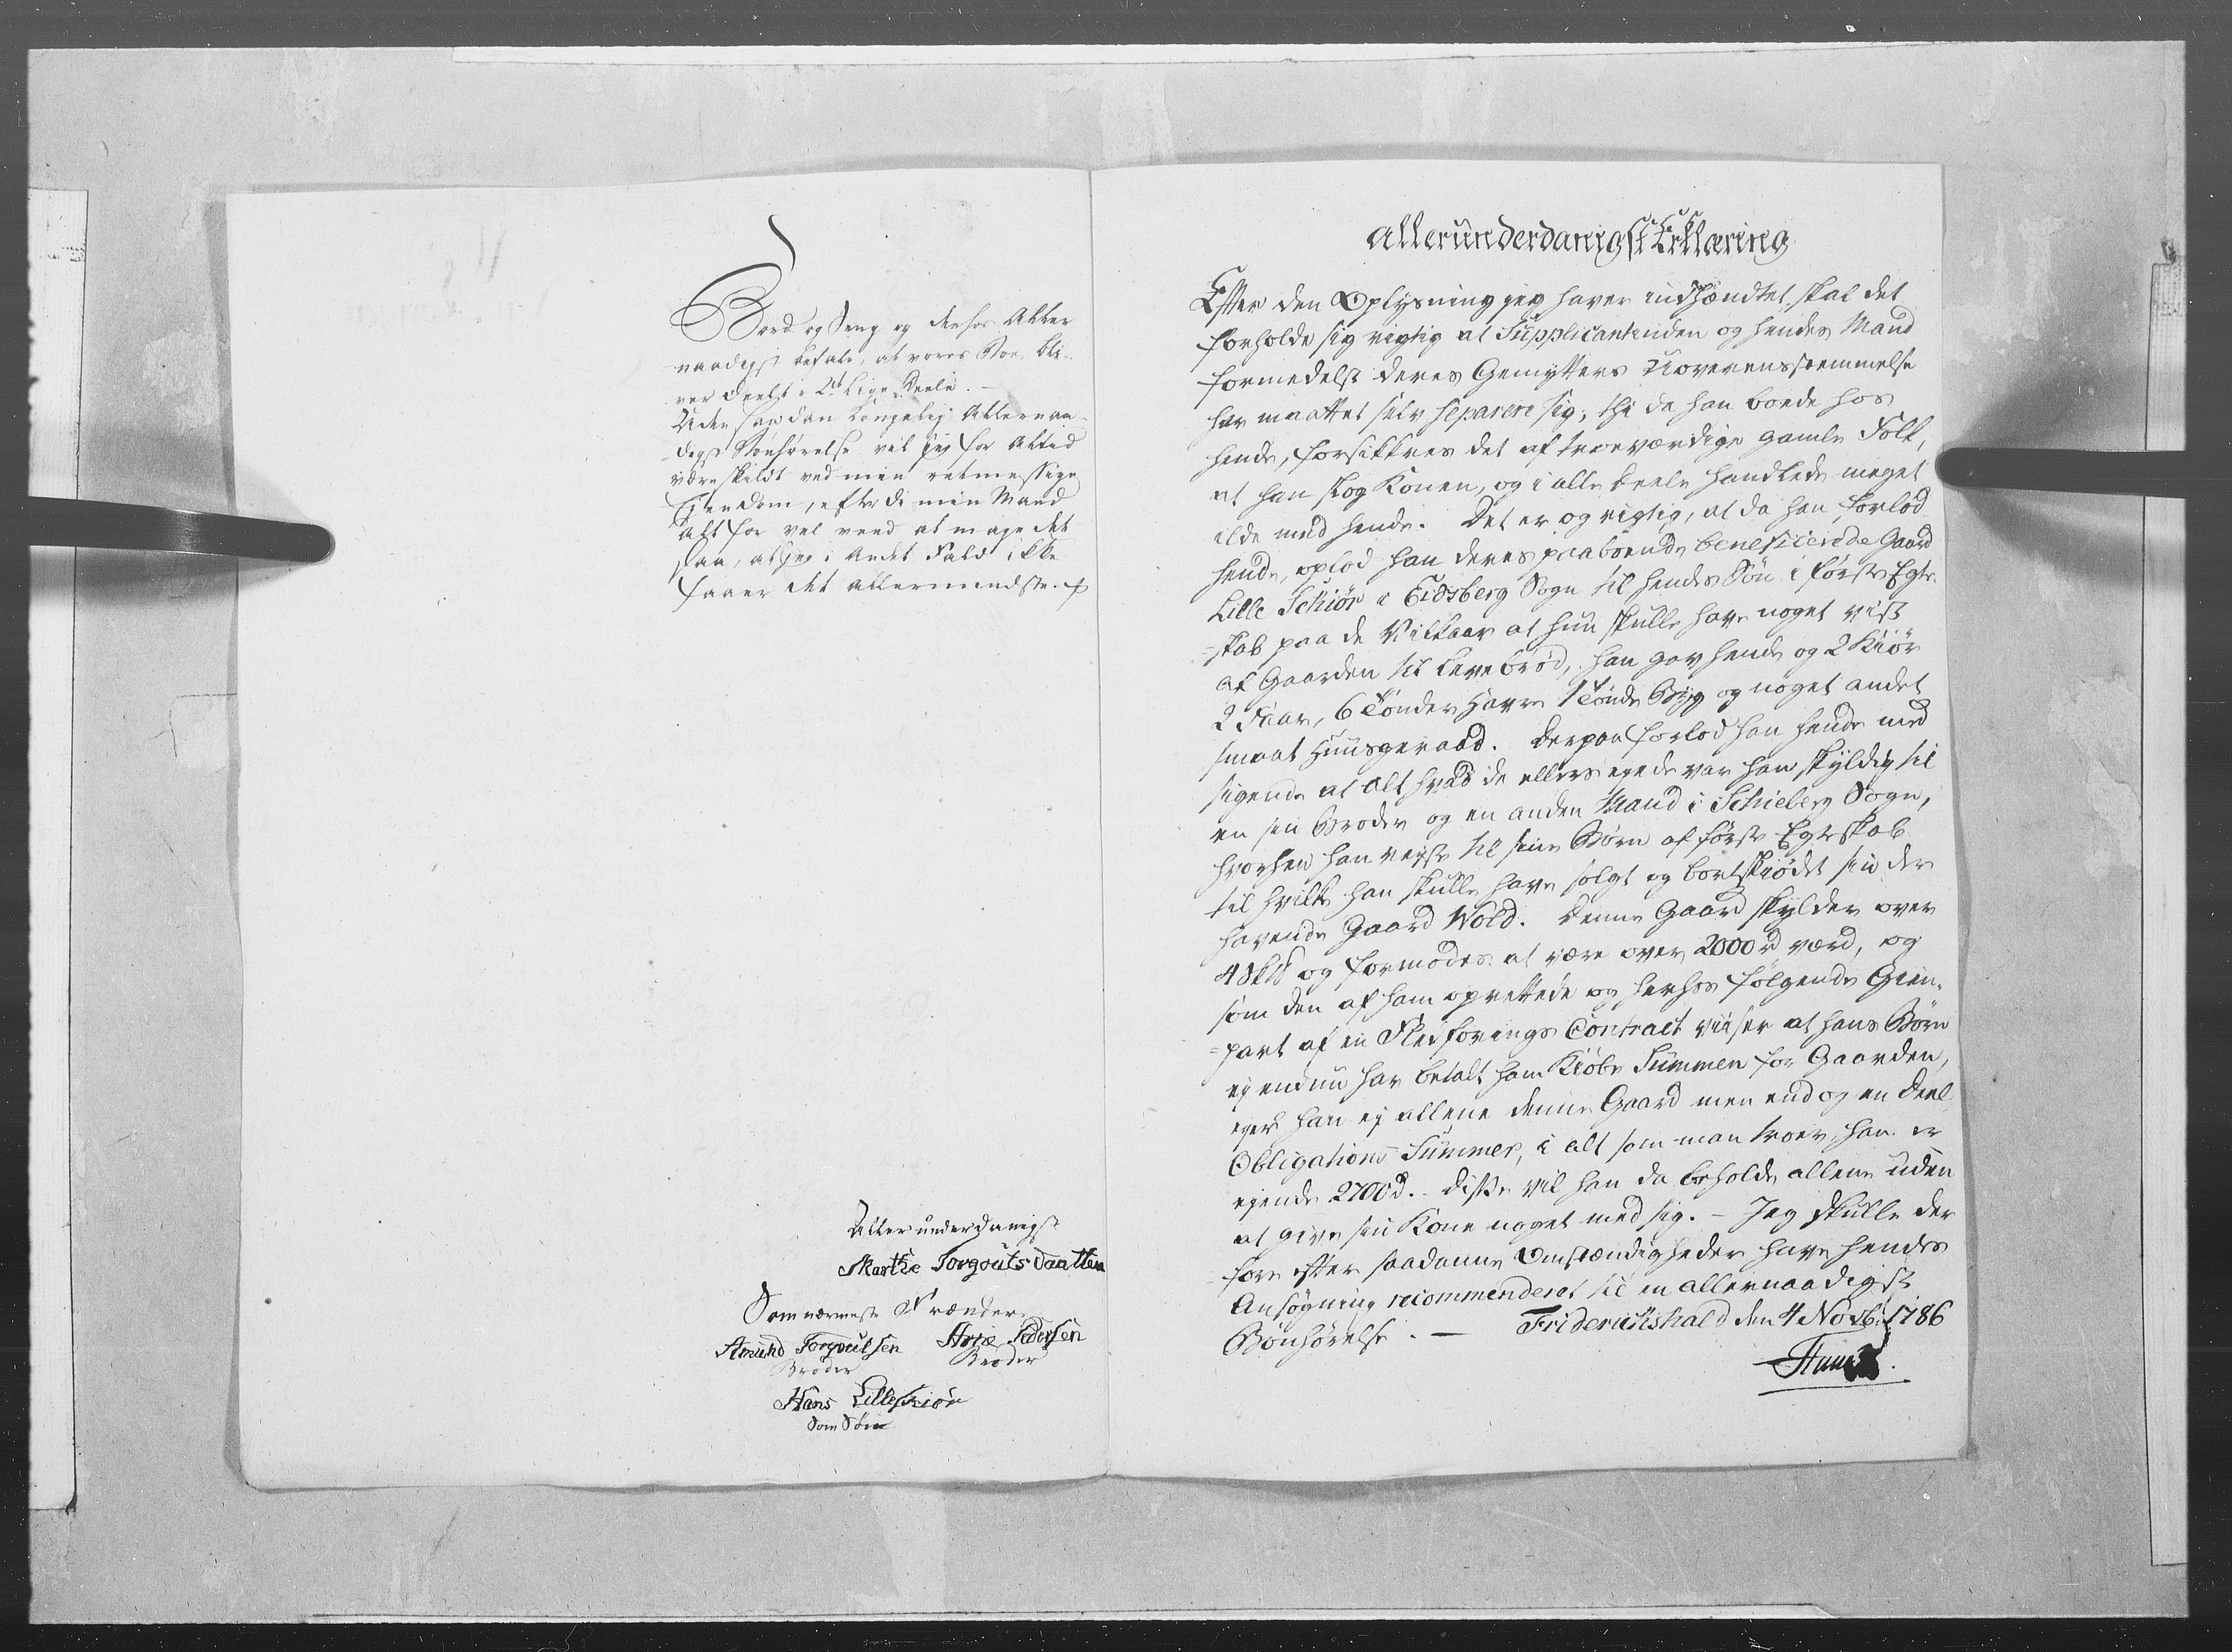 Bord og Seng og derhos Aller
naadigst befale, at vores Boe bli-
ver deelt i 2de lige Deele. –
Uden saadan Kongelig Allernaa-
digst Bønhørelse vil jeg for Altid
være skildt ved min retmessige
Eiendom, efterdi min Mand
alt for vel veed at mage det
saa, at jeg i Andet Fald ikke
faaer det allermindste.
Allerunderdanigst
Marthe Torgouts Daatter
Som nærmeste Frænder
Amund Torgoutsen Arie Pedersen
Broder Broder
Hans Lilleskiør
Som Søn
Allerunderdanigst Erklæring
Efter den Oplysning jeg haver indhændtet, skal det
forholde sig rigtig at Supplicantinden og hendes Mand
formedelst deres Gemytters Uoverensstemmelse
har maattet selv separere sig; thi da han boede hos
hende, forsikkres det af troeværdige gamle Folk,
at han slog Konen, og i alle Deele handlede meget
ilde med hende. Det er og rigtig, at da han forlod
hende, oplod han deres paaboende beneficerede Gaard
Lille Schiør i Eidsberg Sogn til hendes Søn i første Egte-
=skab paa de Vilkaar at hun skulle have noget vist
af Gaarden til Levebrød, han gav hende og 2 Kiør
2 Faar, 6 Tønder Havre 1 Tønde Byg og noget andet
smaat Huusgeraad. Derpaa forlod han hende med
sigende at alt hvad de ellers eyede var han skyldig til
en sin Broder og en anden Mand i Schieberg Sogn,
hvorhen han reyste til sine Børn af første Egteskab
til hvilke han skulle have solgt og bortskiødet sin der
havende Gaard Wold. Denne Gaard skylder over
4 Sk℔ og formodes at være over 2000 rd værd, og
som den af ham oprettede og herhos følgende Gien-
=part af en Fledforings Contract viiser at hans Børn
ej endnu har betalt ham Kiøbe Summen for Gaarden,
eyer han ej allene denne Gaard men endog en Deel
Obligations Summer, i alt som man troer, han er
eyende 2700 d. – disse vil han da beholde allene uden
at give sin Kone noget med sig. – Jeg skulle der
fore efter saadanne Omstændigheder have hendes
Ansøgning recommenderet til en allernaadigst
Bønhørelse. – Friderichshald den 4 Novbr: 1786